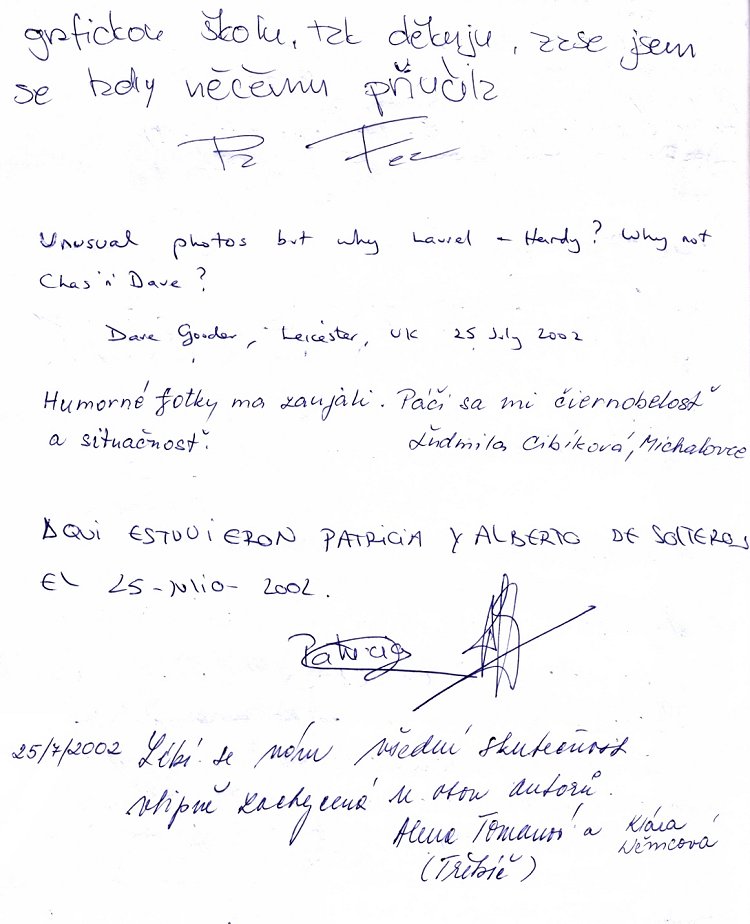 grafickou školu, tak děkuju, zase jsem
se tady něčemu přiučila
Unusual photos but why Laurel + Hardy? Why not
Chas 'n' Dave?
Dave Gooder, Leicester, UK 25 July 2002
Humorné fotky ma zaujali. Páči sa mi čiernobelosť
a situačnosť.
Ľudmila Cibíková, Michalovce
AQUI ESTUVIERON PATRICIA Y ALBERTO DE SOLTEROS
EL 25-JULIO-2002.
Patricia
25/7/2002 Líbí se nám všední skutečnost
vtipně zachycená u obou autorů.
Alena Tomanová a Klára
Němcová
(Třebíč)